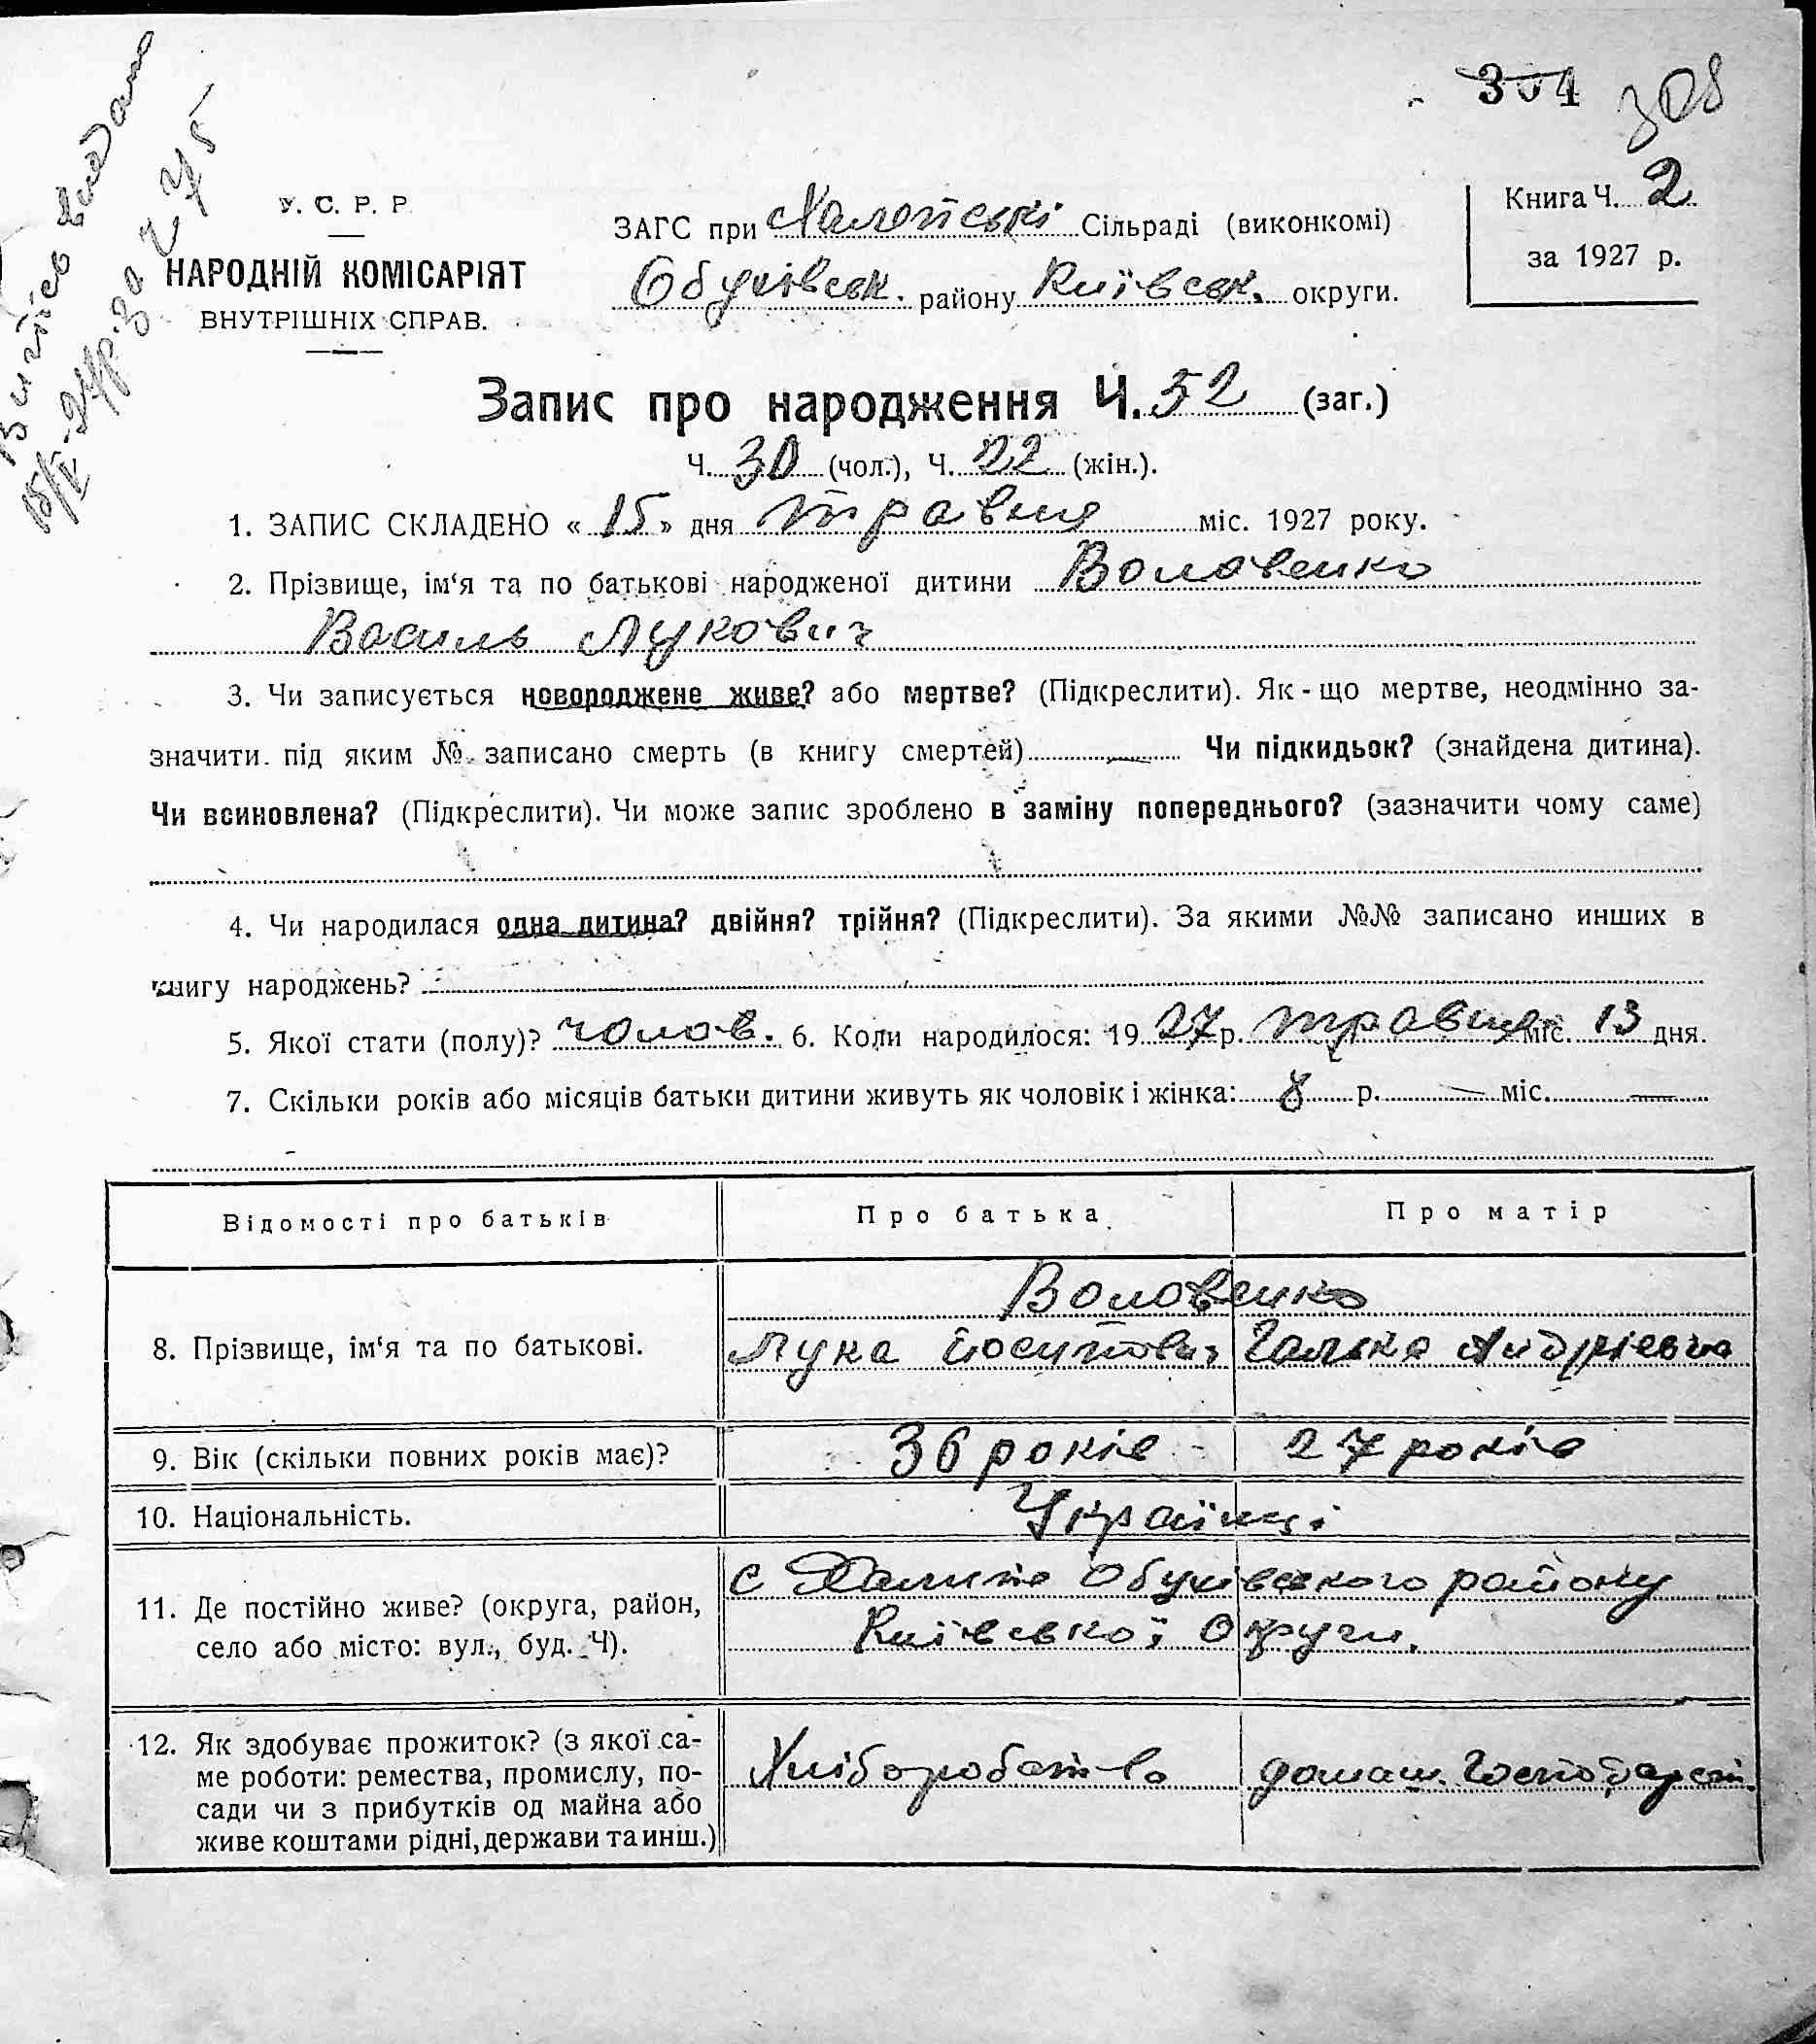 304 308
Витяг видано
У. С. Р. Р.
НАРОДНІЙ КОМІСАРІЯТ
ВНУТРІШНІХ СПРАВ.
ЗАГС при Халепській Сільраді (виконкомі)
Обухівськ. району Київськ. округи.
Книга Ч. 2
за 1927 р.
Запис про народження Ч. 52 (заг.)
Ч. 30 (чол.), Ч. 22 (жін.).
1. ЗАПИС СКЛАДЕНО « 15 » дня травня міс. 1927 року.
2. Прізвище, ім‘я та по батькові народженої дитини Воловенко
Василь Лукович
3. Чи записується новороджене живе? або мертве? (Підкреслити). Як - що мертве, неодмінно за-
значити під яким № записано смерть (в книгу смертей) — Чи підкидьок? (знайдена дитина).
Чи всиновлена? (Підкреслити). Чи може запис зроблено в заміну попереднього? (зазначити чому саме)
4. Чи народилася одна дитина? двійня? трійня? (Підкреслити). За якими №№ записано инших в
книгу народжень?
5. Якої стати (полу)? чолов. 6. Коли народилося: 1927 р. травня міс. 13 дня.
7. Скільки років або місяців батьки дитини живуть як чоловік і жінка: 8 р. — міс. —
Відомості про батьків Про батька Про матір
8. Прізвище, ім‘я та по батькові. Воловенко
Лука Йосипович Галька Андріевна
9. Вік (скільки повних років має)? 36 років 27 років
10. Національність. Українці
11. Де постійно живе? (округа, район,
село або місто: вул., буд. Ч).
с Халипя Обухівського району
Київської Округи.
12. Як здобуває прожиток? (з якої са-
ме роботи: ремества, промислу, по-
сади чи з прибутків од майна або
живе коштами рідні, держави та инш.)
Хліборобство домаш. господарст.